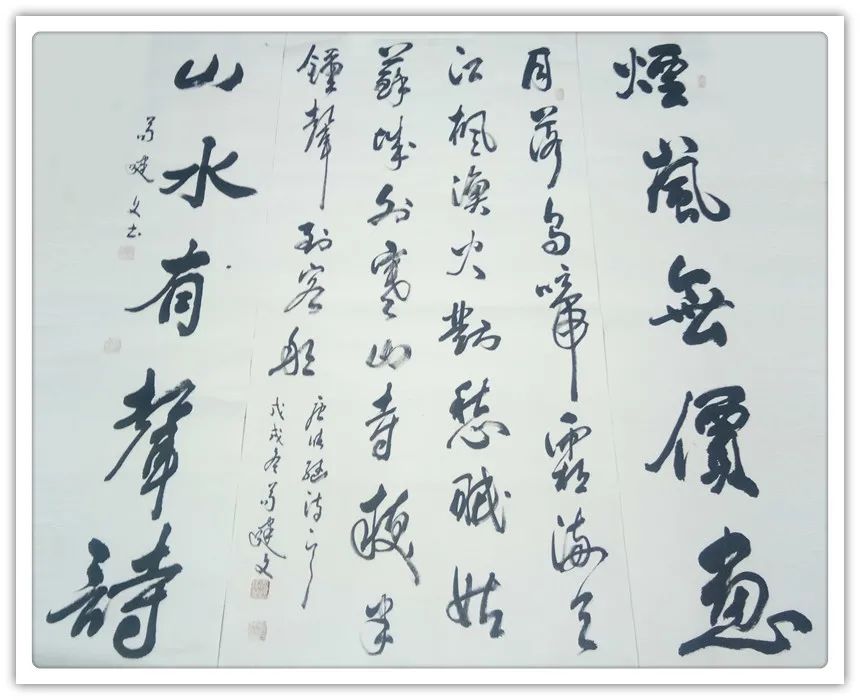 煙嵐無價畫
月落烏啼霜滿天
江楓漁火對愁眠姑
蘇城外寒山寺夜半
鐘聲到客船
唐張繼詩
戊戌冬健文
山水有聲詩
健文书